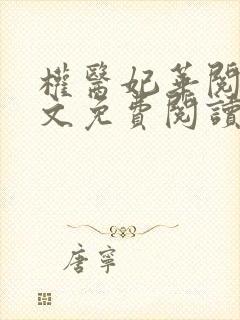 權醫妃華閱
文免費閱讀
唐寧